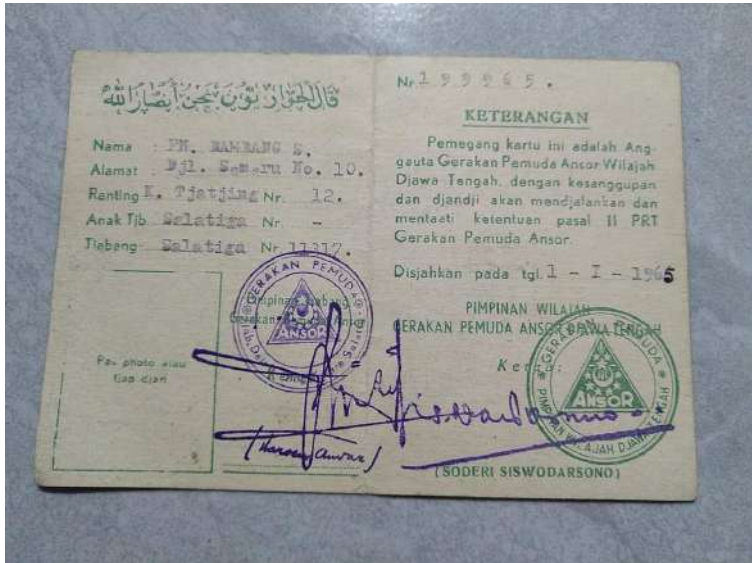 قَالَ الْحَوَارِيُّونَ نَحْنُ أَنْصَارُ اللَّهِ
Nama : PN. BAMBANG S.
Alamat : Djl. Semeru No. 10.
Ranting K. Tjatjing Nr. 12.
Anak Tjb. Salatiga Nr. –
Tjabang Salatiga Nr. 11317.
GERAKAN PEMUDA
ANSOR
Pimpinan Tjabang
Gerakan Pemuda Ansor
Pas photo atau
tjap djari
(Haroen Anwar)
Nr. 199965.
KETERANGAN
Pemegang kartu ini adalah Ang-
gauta Gerakan Pemuda Ansor Wilajah
Djawa Tengah, dengan kesanggupan
dan djandji akan mendjalankan dan
mentaati ketentuan pasal II PRT
Gerakan Pemuda Ansor.
Disjahkan pada tgl. 1 – I – 1965
PIMPINAN WILAJAH
GERAKAN PEMUDA ANSOR DJAWA TENGAH
Ketua
GERAKAN PEMUDA
ANSOR
PIMPINAN WILAJAH DJAWA TENGAH
Siswodarsono
(SODERI SISWODARSONO)